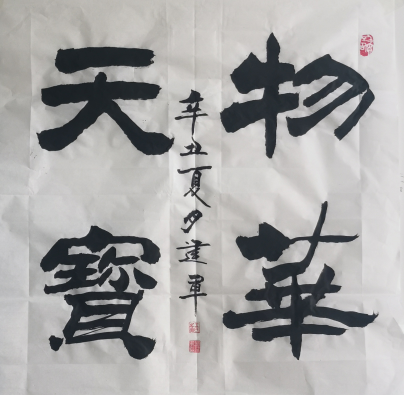 物華
天寶
辛丑夏月建軍